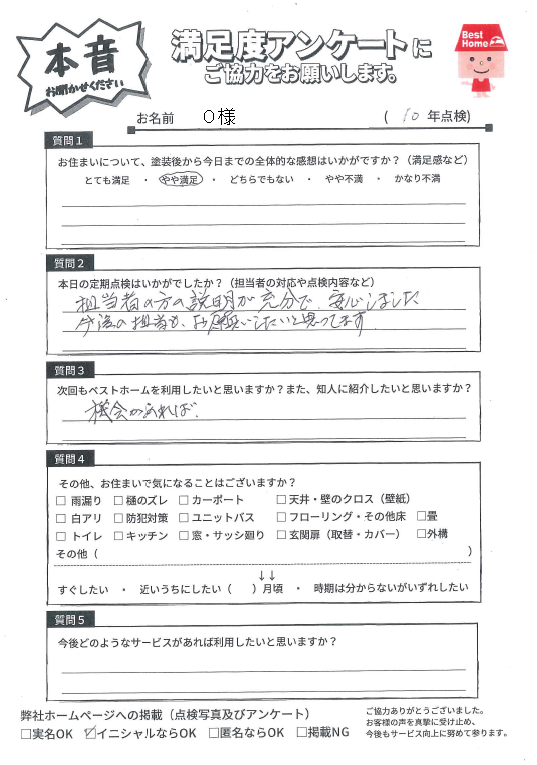 本音
お聞かせください
満足度アンケートに
ご協力をお願いします。
Best
Home
お名前 O様 ( 10 年点検)
質問1
お住まいについて、塗装後から今日までの全体的な感想はいかがですか？（満足感など）
とても満足 ・ やや満足 ・ どちらでもない ・ やや不満 ・ かなり不満
質問2
本日の定期点検はいかがでしたか？（担当者の対応や点検内容など）
担当者の方の説明が充分で、安心しました
今後の担当も、お願いしたいと思ってます
質問3
次回もベストホームを利用したいと思いますか？また、知人に紹介したいと思いますか？
機会があれば.
質問4
その他、お住まいで気になることはございますか？
□ 雨漏り □ 樋のズレ □ カーポート □ 天井・壁のクロス（壁紙）
□ 白アリ □ 防犯対策 □ ユニットバス □ フローリング・その他床 □畳
□ トイレ □ キッチン □ 窓・サッシ廻り □ 玄関扉（取替・カバー） □外構
その他（ ）
↓↓
すぐしたい ・ 近いうちにしたい（ ）月頃 ・ 時期は分からないがいずれしたい
質問5
今後どのようなサービスがあれば利用したいと思いますか？
弊社ホームページへの掲載（点検写真及びアンケート）
□実名OK ☑イニシャルならOK □匿名ならOK □掲載NG
ご協力ありがとうございました。
お客様の声を真摯に受け止め、
今後もサービス向上に努めて参ります。